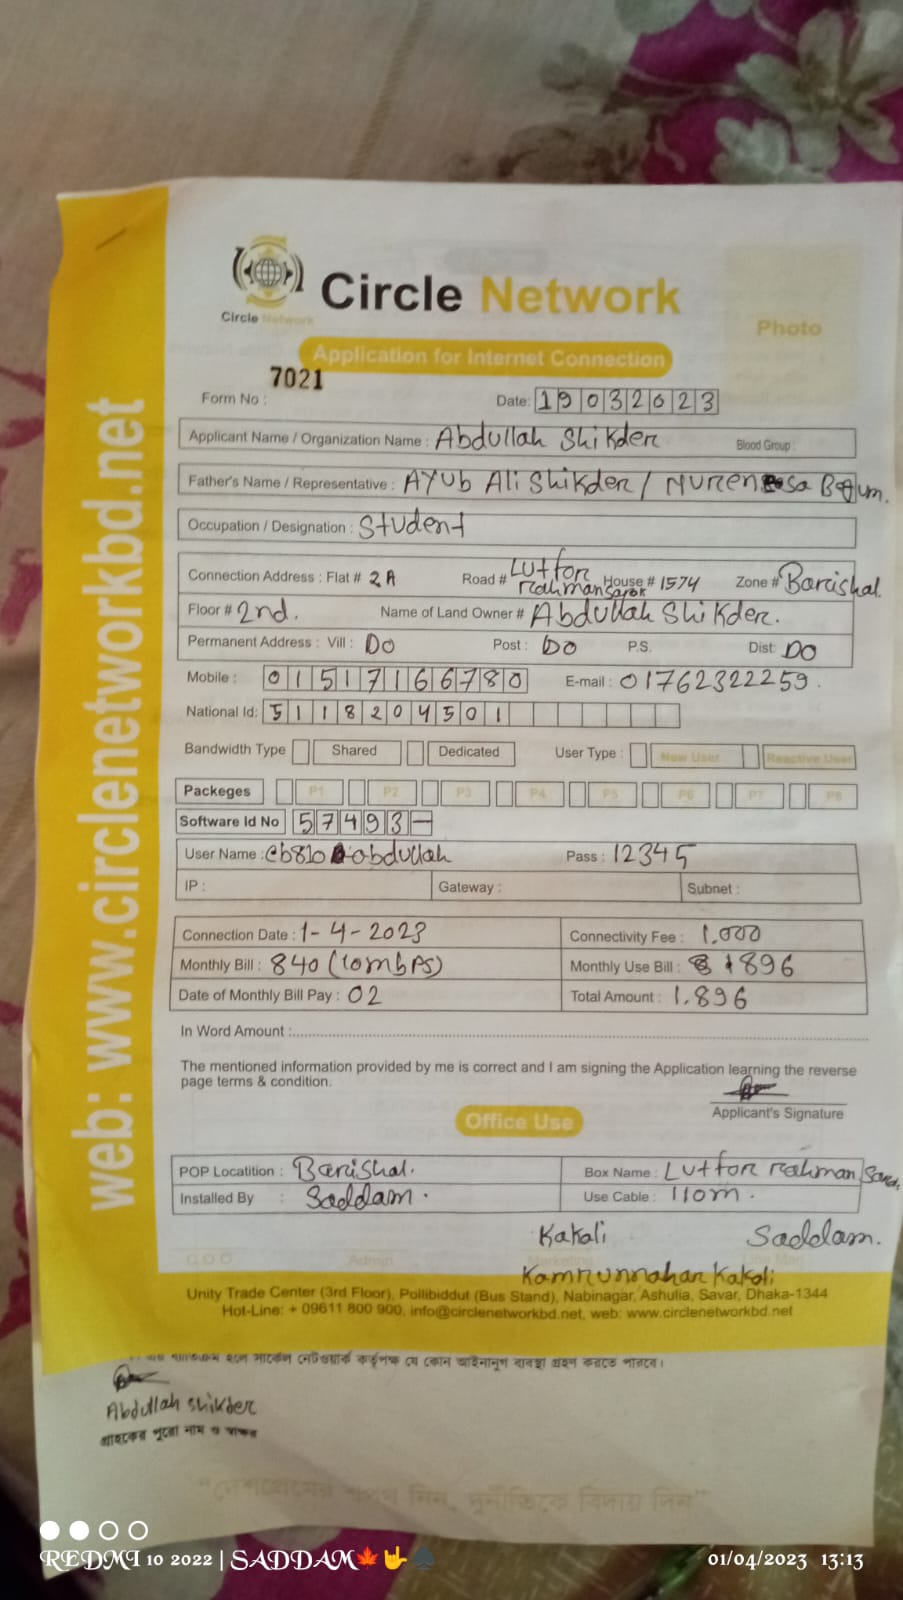 web: www.circlenetworkbd.net
Circle Network
Circle Network
Photo
Application for Internet Connection
Form No : 7021
Date: 19032023
Applicant Name / Organization Name : Abdullah Shikder Blood Group :
Father's Name / Representative : AYub Ali Shikder /
Occupation / Designation : Student
Connection Address : Flat # 2A Road # Lutfor rahman Sarok House # 1574 Zone # Barishal.
Floor # 2nd. Name of Land Owner # Abdullah Shikder.
Permanent Address : Vill : DO Post : DO P.S. Dist: DO
Mobile : 01517166780 E-mail : 01762322259.
National Id: 5118204501
Bandwidth Type Shared Dedicated User Type : New User Reactive User
Packeges P1 P2 P3 P4 P5 P6 P7 P8
Software Id No 57493-
User Name : Pass : 12345
IP : Gateway : Subnet :
Connection Date : 1-4-2023 Connectivity Fee : 1.000
Monthly Bill : 840 (10mbPS) Monthly Use Bill : 896
Date of Monthly Bill Pay : 02 Total Amount : 1.896
In Word Amount :
The mentioned information provided by me is correct and I am signing the Application learning the reverse
page terms & condition.
Applicant's Signature
Office Use
POP Locatition : Barishal. Box Name : Lutfor rahman
Installed By : Saddam. Use Cable : 110m.
Kakali Saddam.
Admin Marketing
Kamrunnahar Kakoli
Unity Trade Center (3rd Floor), Pollibiddut (Bus Stand), Nabinagar, Ashulia, Savar, Dhaka-1344
Hot-Line: + 09611 800 900, info@circlenetworkbd.net, web: www.circlenetworkbd.net
হলে সার্কেল নেটওয়ার্ক কর্তৃপক্ষ যে কোন আইনানুগ ব্যবস্থা গ্রহণ করতে পারবে।
Abdullah Shikder
গ্রাহকের পুরো নাম ও স্বাক্ষর
"দেশপ্রেমের শপথ নিন, দুর্নীতিকে বিদায় দিন"
REDMI 10 2022 | SADDAM🍁🤟♠️
01/04/2023 13:13